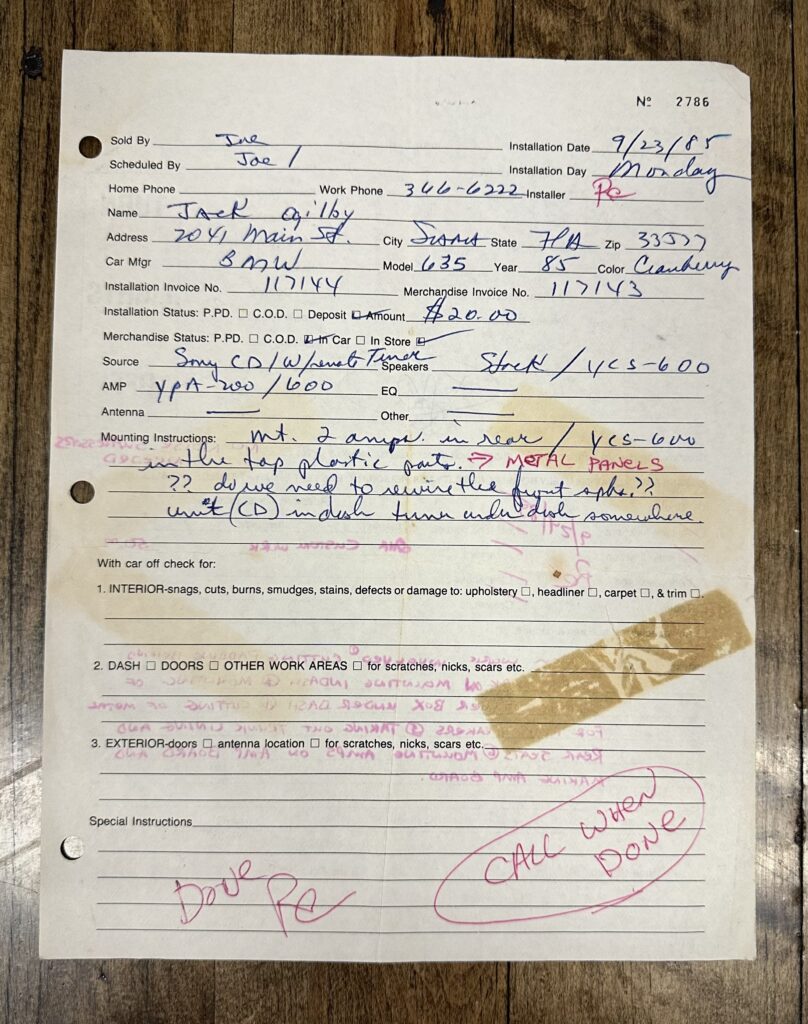 Nº 2786
Sold By Joe Installation Date 9/23/85
Scheduled By Joe / Installation Day Monday
Home Phone Work Phone 366-6222 Installer PC
Name JAck Ogilby
Address 2041 Main St. City State FLA Zip 33577
Car Mfgr BMW Model 635 Year 85 Color Cranberry
Installation Invoice No. 117144 Merchandise Invoice No. 117143
Installation Status: P.PD. ☐ C.O.D. ☐ Deposit ☑ Amount $20.00
Merchandise Status: P.PD. ☐ C.O.D. ☑ In Car ☐ In Store ☑
Source Sony CD/W/ Tuner Speakers Stock / YCS-600
AMP YPA-200/600 EQ —
Antenna — Other —
Mounting Instructions: mt. 2 amps. in rear / YCS-600
in the top plastic parts. → METAL PANELS
?? do we need to rewire the front spks.??
unit (CD) in dash tuner under dash somewhere.
With car off check for:
1. INTERIOR-snags, cuts, burns, smudges, stains, defects or damage to: upholstery ☐, headliner ☐, carpet ☐, & trim ☐.
2. DASH ☐ DOORS ☐ OTHER WORK AREAS ☐ for scratches, nicks, scars etc.
3. EXTERIOR-doors ☐ antenna location ☐ for scratches, nicks, scars etc.
Special Instructions
CALL WHEN
DONE
DONE PC